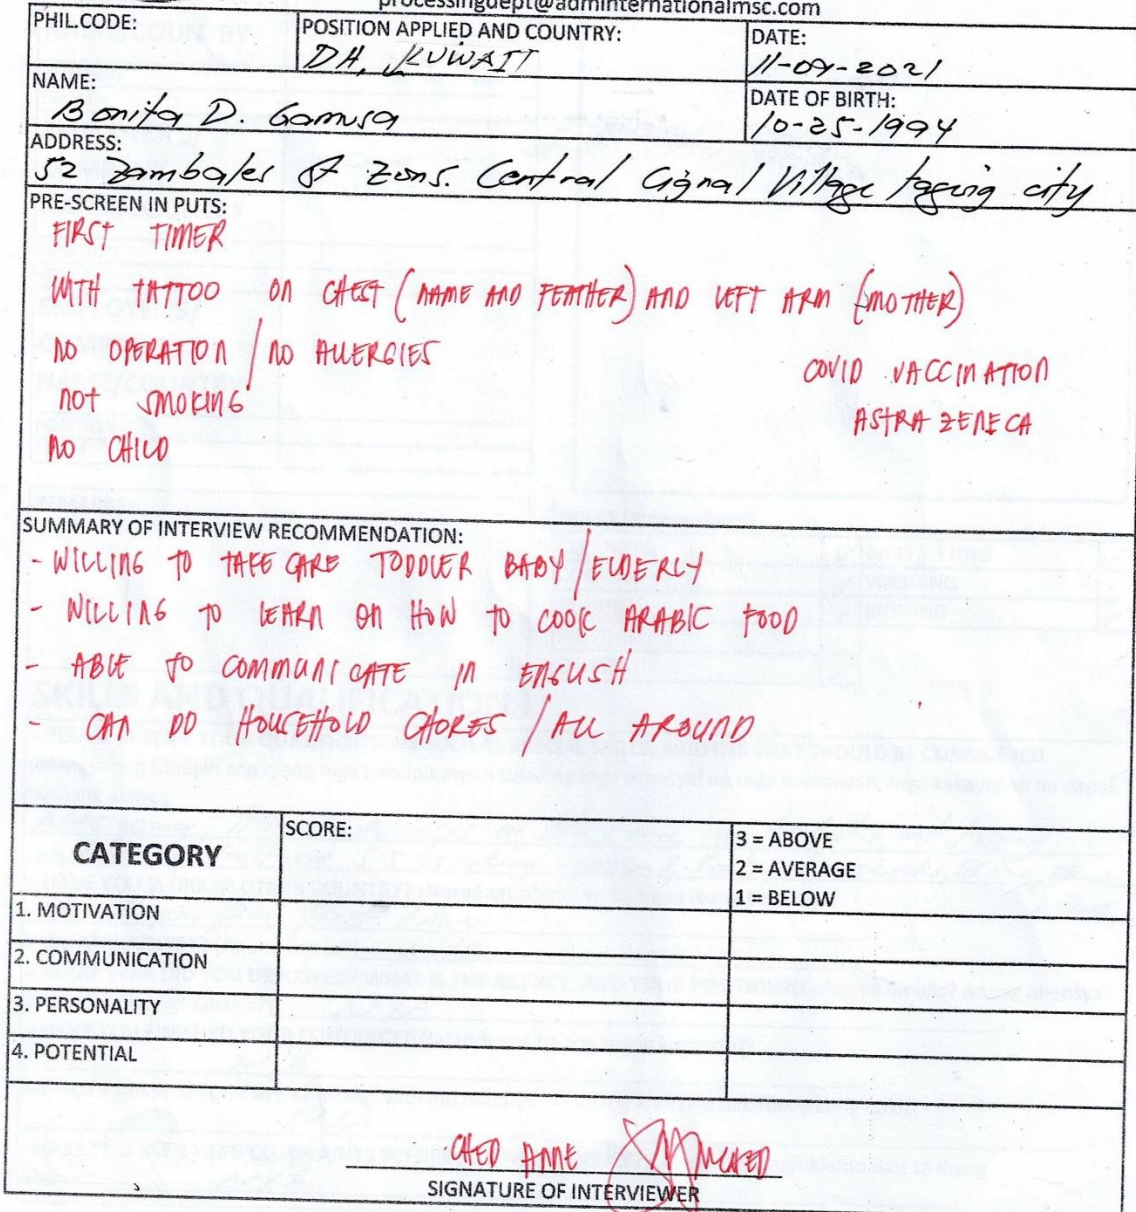 processingdept@adminternationalmsc.com
PHIL.CODE:
POSITION APPLIED AND COUNTRY:
DH, KUWAIT
DATE:
11-09-2021
NAME:
Bonita D. Gamusa
DATE OF BIRTH:
10-25-1994
ADDRESS:
52 Zambales St Zone. Central Signal Village Taguig city
PRE-SCREEN IN PUTS:
FIRST TIMER
WITH TATTOO ON CHEST (NAME AND FEATHER) AND LEFT ARM (MOTHER)
NO OPERATION / NO ALLERGIES
COVID VACCINATION
NOT SMOKING
ASTRA ZENECA
NO CHILD
SUMMARY OF INTERVIEW RECOMMENDATION:
- WILLING TO TAKE CARE TODDLER BABY / ELDERLY
- WILLING TO LEARN ON HOW TO COOK ARABIC FOOD
- ABLE TO COMMUNICATE IN ENGLISH
- CAN DO HOUSEHOLD CHORES / ALL AROUND
CATEGORY
SCORE:
3 = ABOVE
2 = AVERAGE
1 = BELOW
1. MOTIVATION
2. COMMUNICATION
3. PERSONALITY
4. POTENTIAL
CHED ANNE
SIGNATURE OF INTERVIEWER